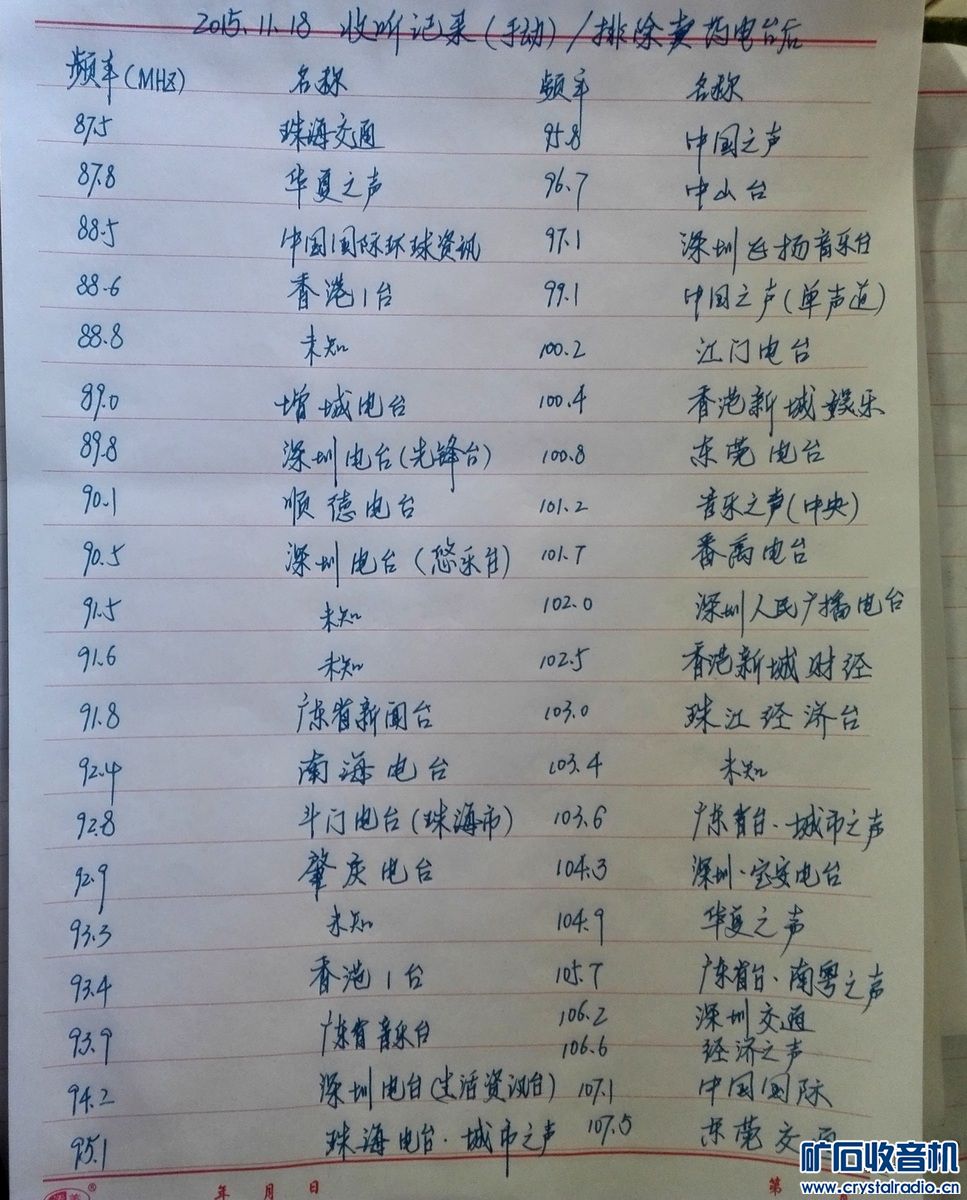 2015.11.18 收听记录(手动)/排除卖药电台后
频率(MHZ) 名称 频率 名称
87.5 珠海交通 95.8 中国之声
87.8 华夏之声 96.7 中山台
88.5 中国国际环球资讯 97.1 深圳飞扬音乐台
88.6 香港1台 99.1 中国之声(单声道)
88.8 未知 100.2 江门电台
89.0 增城电台 100.4 香港新城娱乐
89.8 深圳电台(先锋台) 100.8 东莞电台
90.1 顺德电台 101.2 音乐之声(中央)
90.5 深圳电台(悠乐台) 101.7 番禹电台
91.5 未知 102.0 深圳人民广播电台
91.6 未知 102.5 香港新城财经
91.8 广东省新闻台 103.0 珠江经济台
92.4 南海电台 103.4 未知
92.8 斗门电台(珠海市) 103.6 广东省台·城市之声
92.9 肇庆电台 104.3 深圳·宝安电台
93.3 未知 104.9 华夏之声
93.4 香港1台 105.7 广东省台·南粤之声
93.9 广东省音乐台 106.2 深圳交通
106.6 经济之声
94.2 深圳电台(生活资讯台) 107.1 中国国际
95.1 珠海电台·城市之声 107.5 东莞交
年 月 日 第
矿石收音机
www.crystalradio.cn